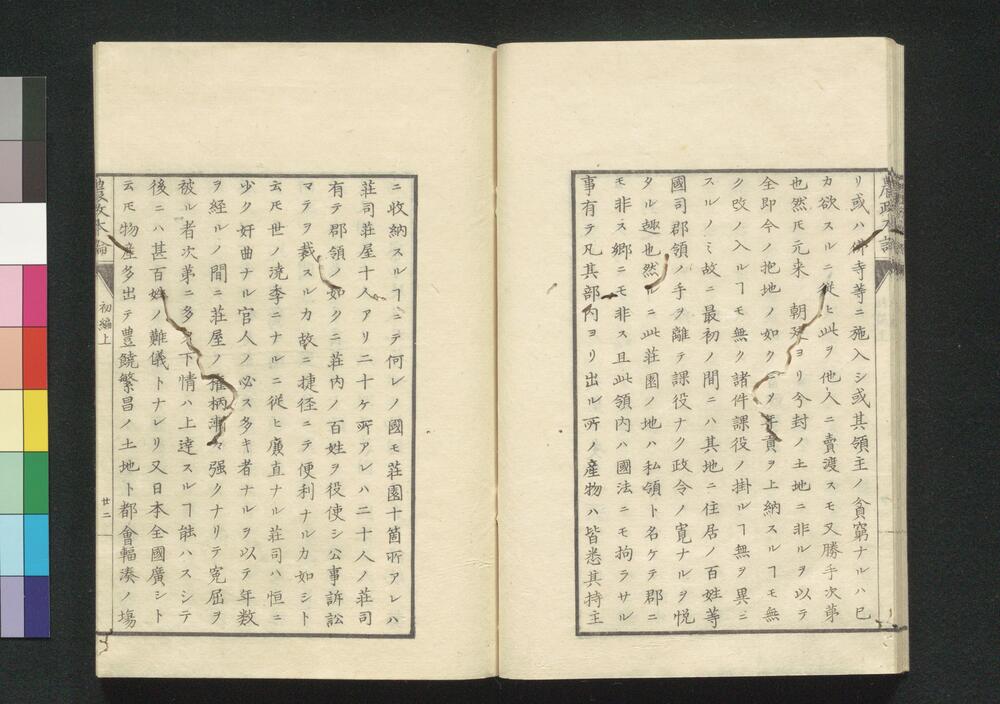 リ或ハ佛寺等ニ施入シ或其領主ノ貪窮ナルハ已
カ欲スルニ從ヒ此ヲ他人ニ賣渡スモ又勝手次第
也然𪜈元来 朝廷ヨリ今封ノ土地ニ非ルヲ以テ
全即今ノ抱地ノ如ク年貢ヲ上納スルヿモ無
ク改ノ入ルヿモ無ク諸件課役ノ掛ルヿ無ヲ異ニ
スルノミ故ニ最初ノ間ニハ其地ニ住居ノ百姓等
國司郡領ノ手ヲ離テ課役ナク政令ノ寛ナルヲ悦
タル趣也然ルニ此荘園ノ地ハ私領ト名ケテ郡ニ
モ非ス郷ニモ非ス且此領内ハ國法ニモ拘ラサル
事有テ凡其部内ヨリ出ル所ノ産物ハ皆悉其持主
ニ收納スルヿニテ何レノ國モ荘園十箇所アレハ
荘司荘屋十人アリ二十ケ所アレハ二十人ノ荘司
有テ郡領ノ如クニ荘内ノ百姓ヲ役使シ公事訴訟
マテヲ裁スルカ故ニ捷径ニテ便利ナルカ如シト
云𪜈世ノ澆季ニナルニ従ヒ廉直ナル荘司ハ恒ニ
少ク奸曲ナル官人ノ必ス多キ者ナルヲ以テ年数
ヲ経ルノ間ニ荘屋ノ權柄漸々强クナリテ寃屈ヲ
被ル者次第ニ多ク下情ハ上達スルヿ能ハスシテ
後ニハ甚百姓ノ難儀トナレリ又日本全國廣シト
云𪜈物産多出テ豊饒繁昌ノ土地ト都會輻湊ノ塲
農政本論
初編上
廿二